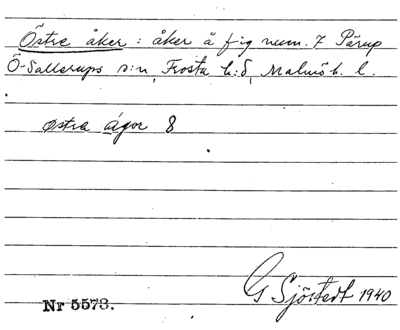 Östre åker : åker å fig num. 7 Pärup
Ö-Sallerups s:n, Frosta h:d, Malmöh. l.
östra ägor 8
G Sjöstedt 1940
Nr 5573.